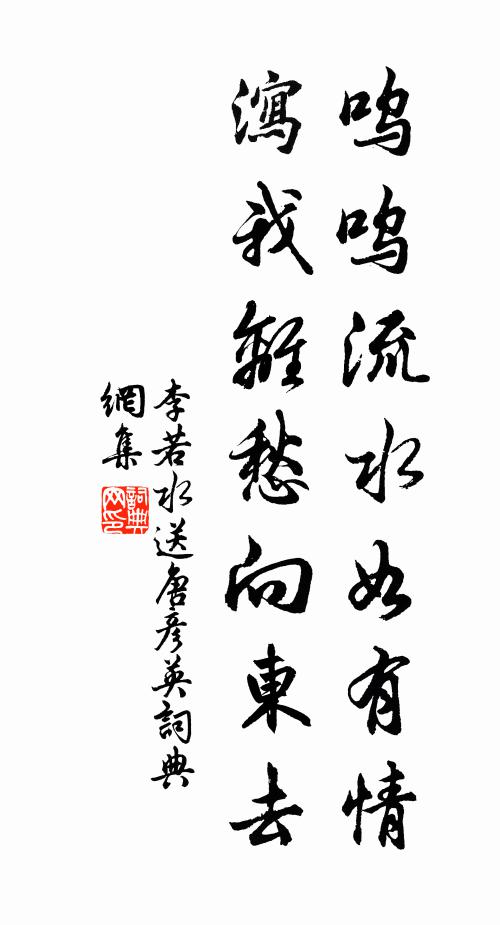 嗚嗚流水如有情
瀉我離愁向東去
李若水送唐彥英詞典
網集
詞典網印